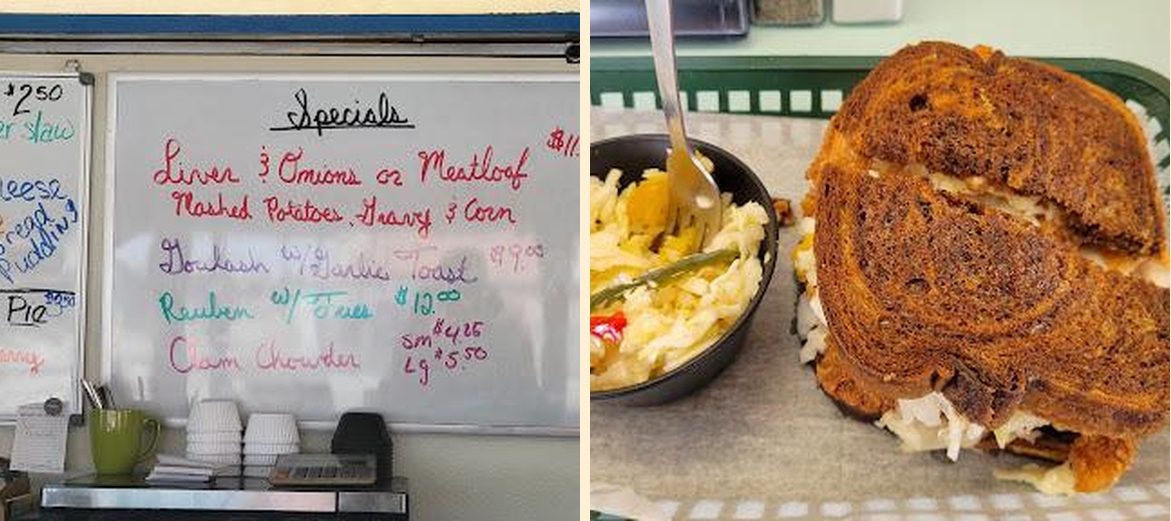 $2.50
er slaw
eese
read
Pudding
Pie $3.50
erry
Specials
Liver & Onions or Meatloaf $11.
Mashed Potatoes, Gravy & Corn
Goulash w/Garlic Toast $9.00
Reuben w/ Fries $12.00
Clam Chowder sm $4.25
Lg $5.50